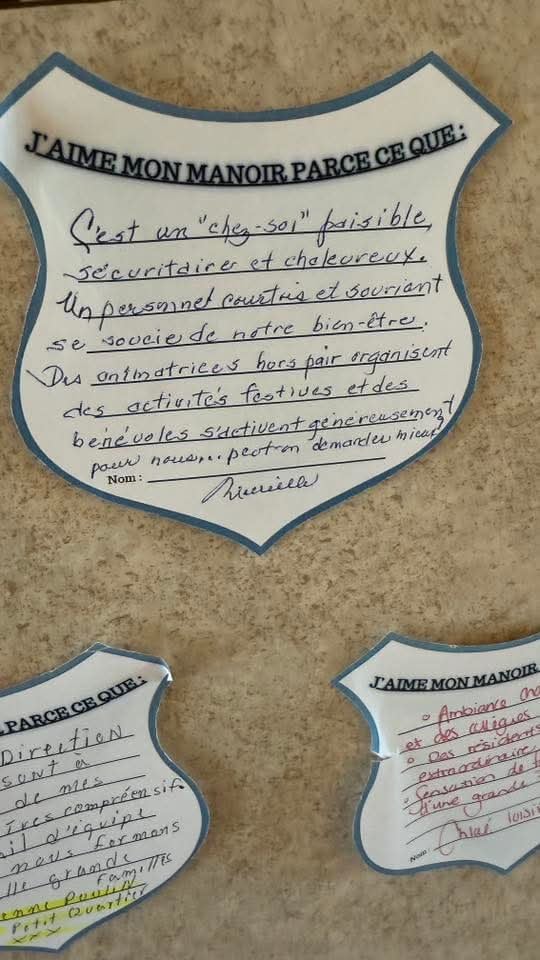 J'AIME MON MANOIR PARCE CE QUE :
C'est un "chez-soi" paisible,
sécuritaire et chaleureux.
Un personnel courtois et souriant
se soucie de notre bien-être.
Des animatrices hors pair organisent
des activités festives et des
bénévoles s'activent généreusement
pour nous... peut-on demander mieux
Nom :
PARCE CE QUE :
Direction
sont à
de mes
compréensifs
d'équipe
nous formons
grande
familles
Petit Quartier
xxx
J'AIME MON MANOIR
Ambiance
et des collègues
Des résidents
extraordinaire
Sensation de
d'une grande
Nom :